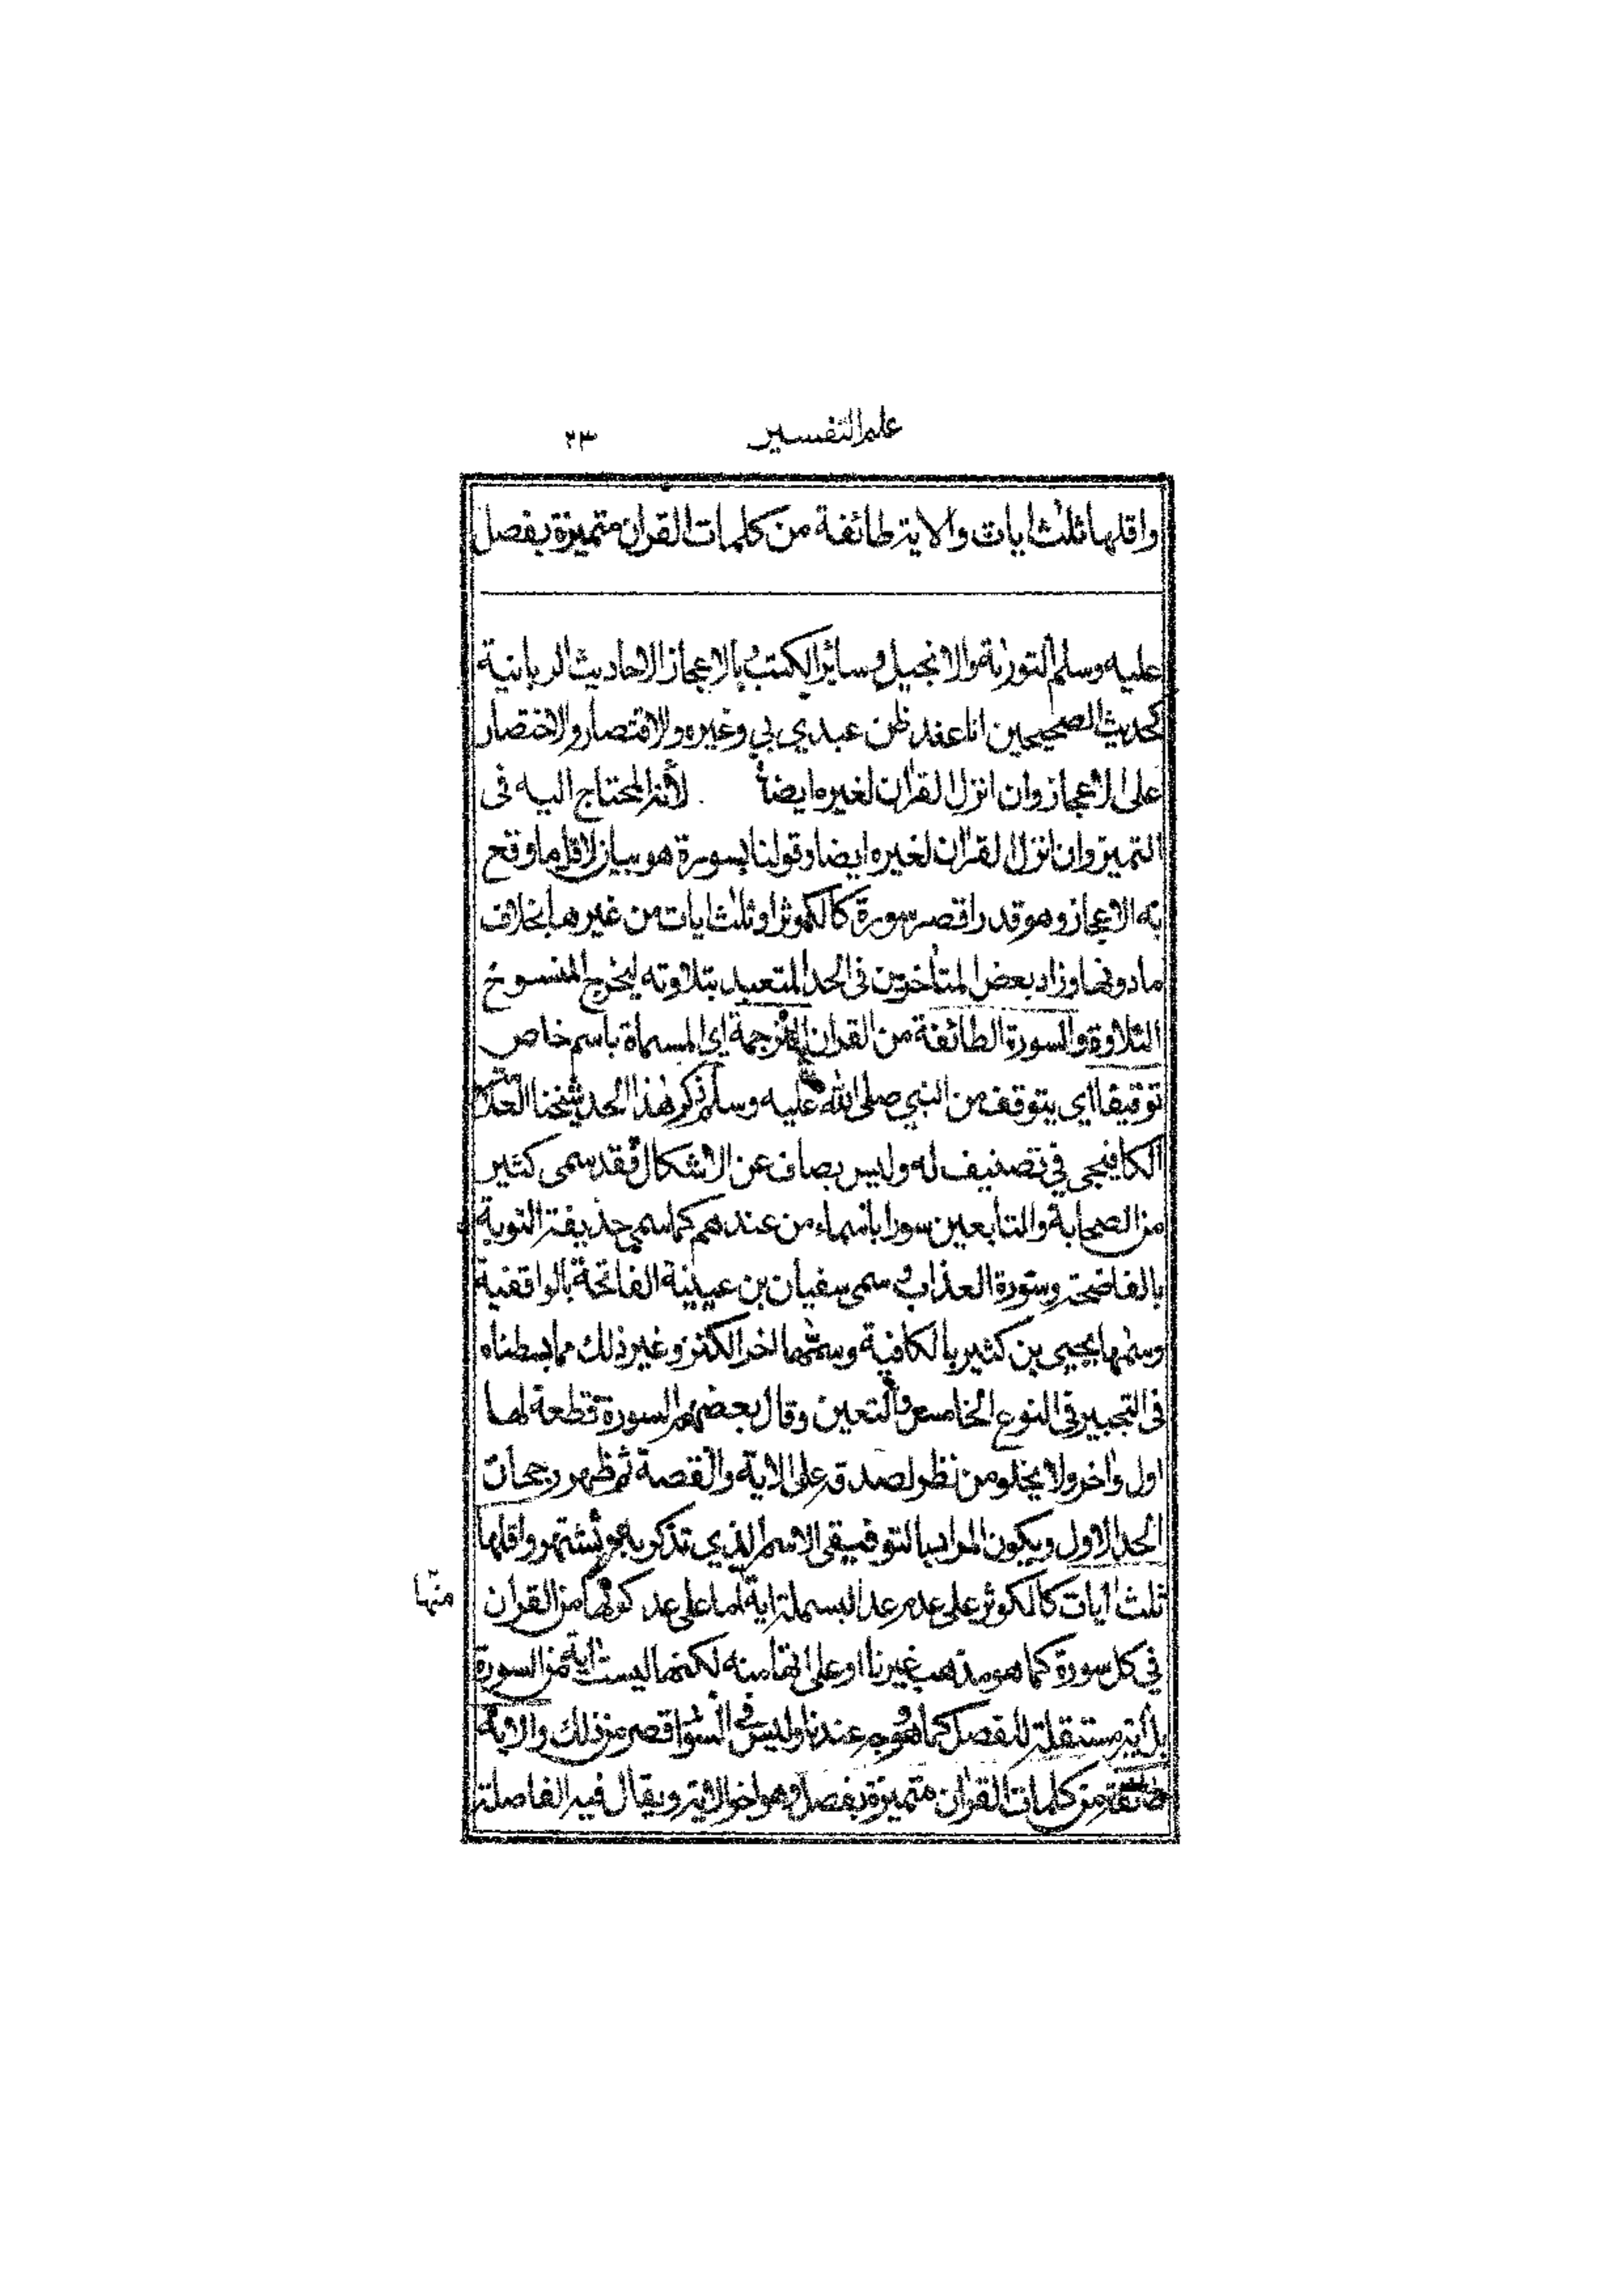 علم التفسير ٢٣
واقلها ثلث ايات والاية طائفة من كلمات القران متميزة بفصل
عليه وسلم التورٰىة والانجيل وسائر الكتب وبالاعجاز الاحاديث الربانية
كحديث الصحيحين انا عند ظن عبدي بي وغيره والاقتصار والاختصار
على الاعجاز وان انزل القران لغيره ايضا لأنه المحتاج اليه فى
التميز وان انزل القران لغيره ايضا وقولنا بسورة هو بيان لاقل ما وقع
به الاعجاز وهو قدر اقصر سورة كالكوثر او ثلث ايات من غيرها بخلاف
ما دونها وزاد بعض المتأخرين فى الحد المتعبد بتلاوته ليخرج المنسوخ
التلاوة والسورة الطائفة من القران المترجمة اي المسماة باسم خاص
توقيفا اي بتوقف من النبي صلى الله عليه وسلم ذكر هذا الحد شيخنا العلامة
الكافيجي في تصنيف له وليس بصاف عن الاشكال فقد سمى كثير
من الصحابة والتابعين سورا باسماء من عندهم كما سمى حذيفة التوبة
بالفاضحة وسورة العذاب وسمى سفيان بن عيينة الفاتحة بالواقفية
وسمٰها يحيى بن كثير بالكافية وسمٰها اخر الكنز وغير ذلك مما بسطناه
فى التحبير فى النوع الخامس والتسعين وقال بعضهم السورة قطعة لها
اول واخر ولا يخلو من نظر لصدقه على الاية والقصة ثم ظهر رجحان
الحد الاول ويكون المراد بالتوقيفى الاسم الذي تذكر به وتشتهر واقلها
ثلث ايات كالكوثر على عدم عد البسملة اية اما على عد كونها من القران
منها
في كل سورة كما هو مذهب غيرنا او على انها منه لكنها ليست اية من السورة
بل اية مستقلة للفصل كما هو وجه عندنا وليس فى السور اقصر من ذلك والاية
طائفة من كلمات القران متميزة بفصل وهو اخر الاية ويقال فيه الفاصلة